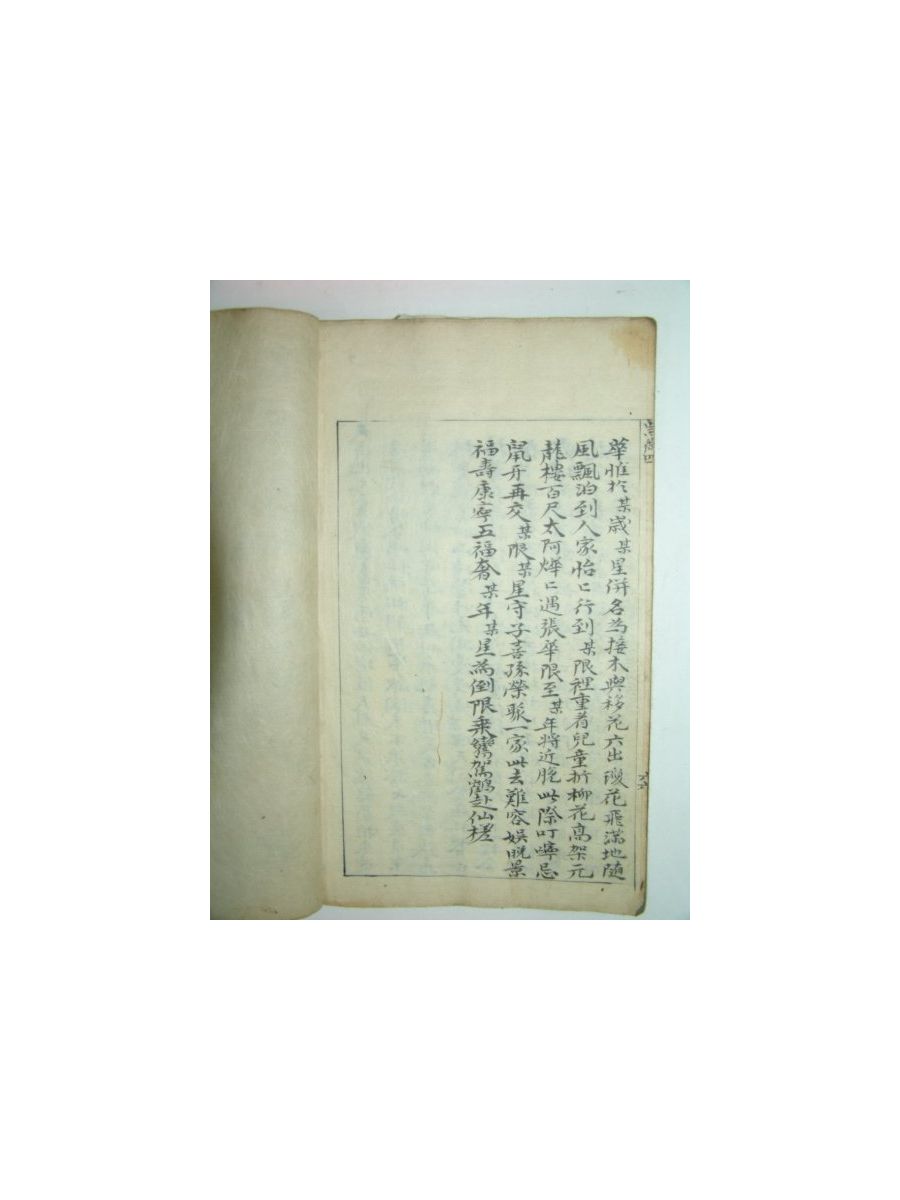 華惟於某歲某星併名為接木與移花六出瓊花飛滿地隨
風飄泊到人家怡〻行到某限裡重着兒童折柳花高架元
龍樓百尺太阿燁〻遇張華限至某年將近晩此際叮嚀忌
鼠牙再交某限某星守子喜孫榮聚一家此去難容娛晩景
福壽康寧五福奢某年某星為倒限乘鸞駕鶴赴仙槎